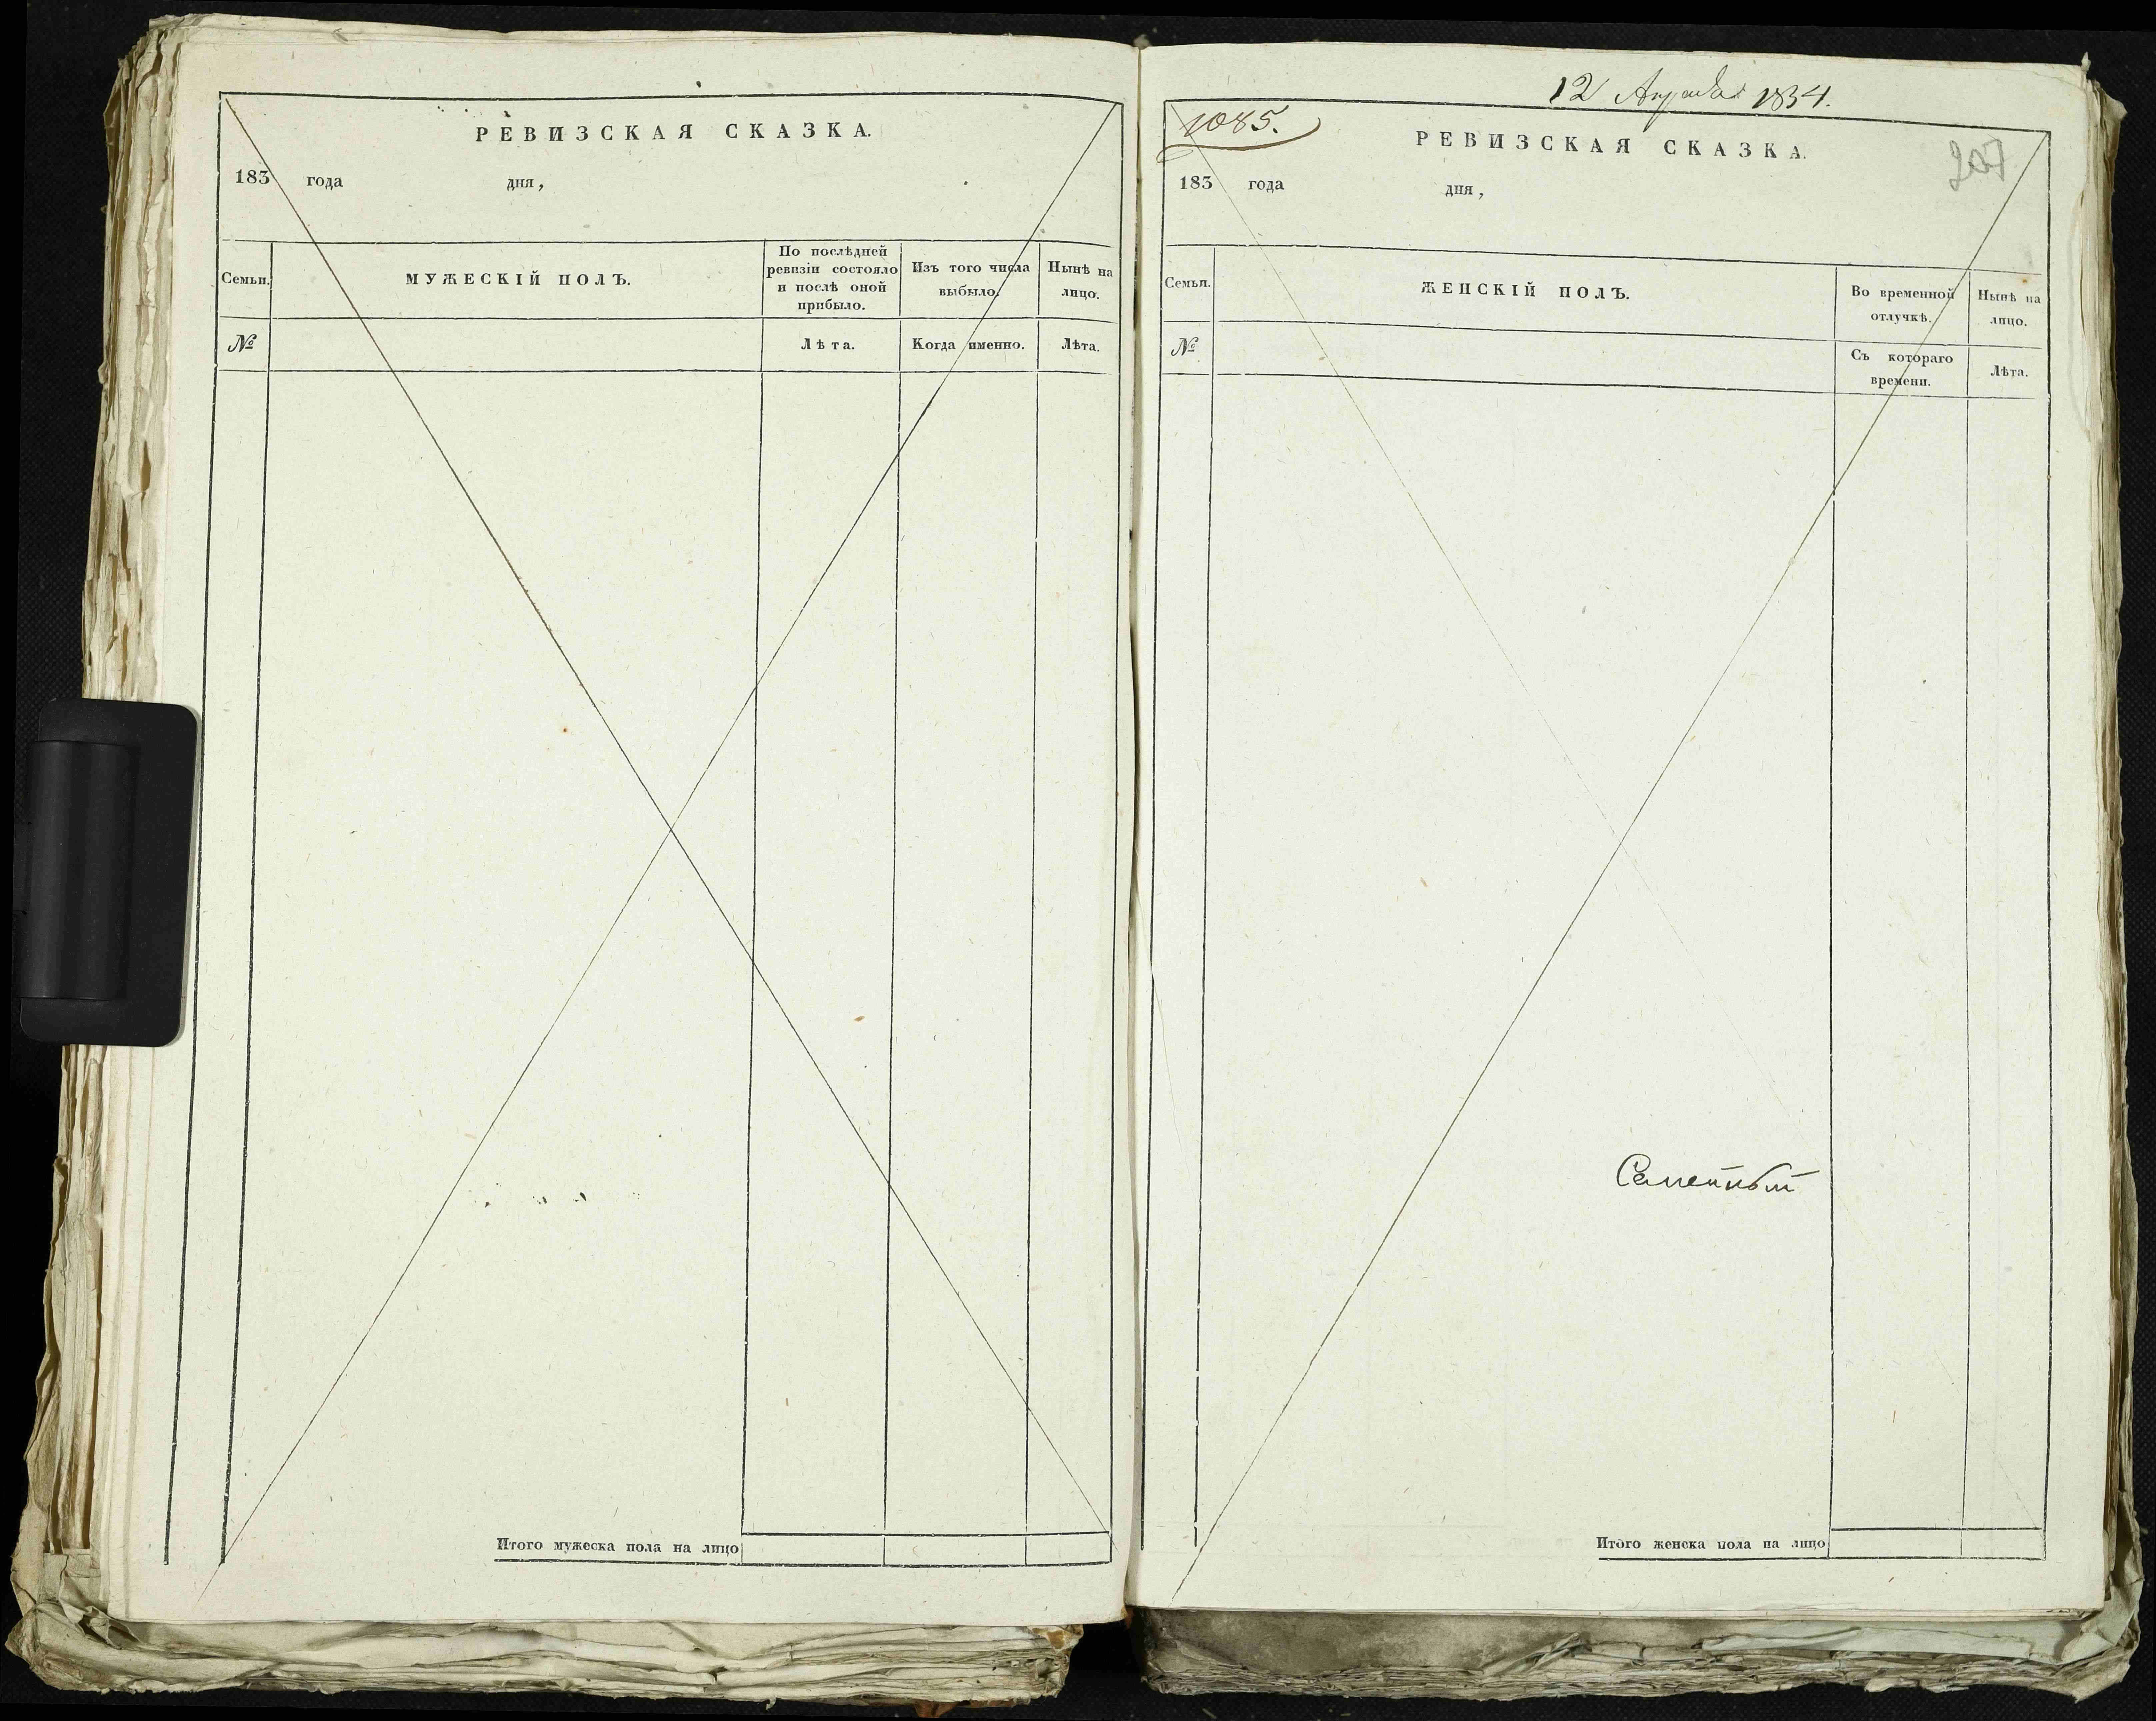 РЕВИЗСКАЯ СКАЗКА.
183 года дня,
Семьи.
МУЖЕСКІЙ ПОЛЪ.
По послѣдней
ревизіи состояло
и послѣ оной
прибыло.
Изъ того числа
выбыло.
Нынѣ на
лицо.
№
Лѣта.
Когда именно.
Лѣта.
Итого мужеска пола на лицо
12 Апрѣля 1834.
1085.
РЕВИЗСКАЯ СКАЗКА.
183 года дня,
Семьи.
ЖЕНСКІЙ ПОЛЪ.
Во временной
отлучкѣ.
Нынѣ на
лицо.
№
Съ котораго
времени.
Лѣта.
Итого женска пола на лицо